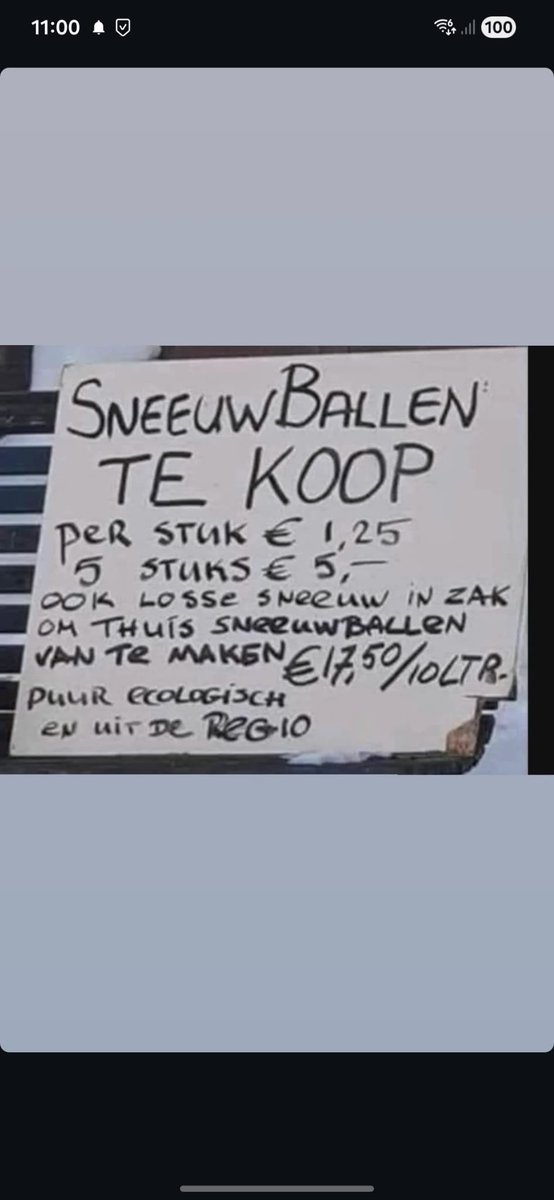 11:00
6
100
SNEEUWBALLEN:
TE KOOP
PER STUK € 1,25
5 STUKS € 5,-
OOK LOSSE SNEEUW IN ZAK
OM THUIS SNEEUWBALLEN
VAN TE MAKEN €17,50/10LTR.
PUUR ECOLOGISCH
EN UIT DE REGIO